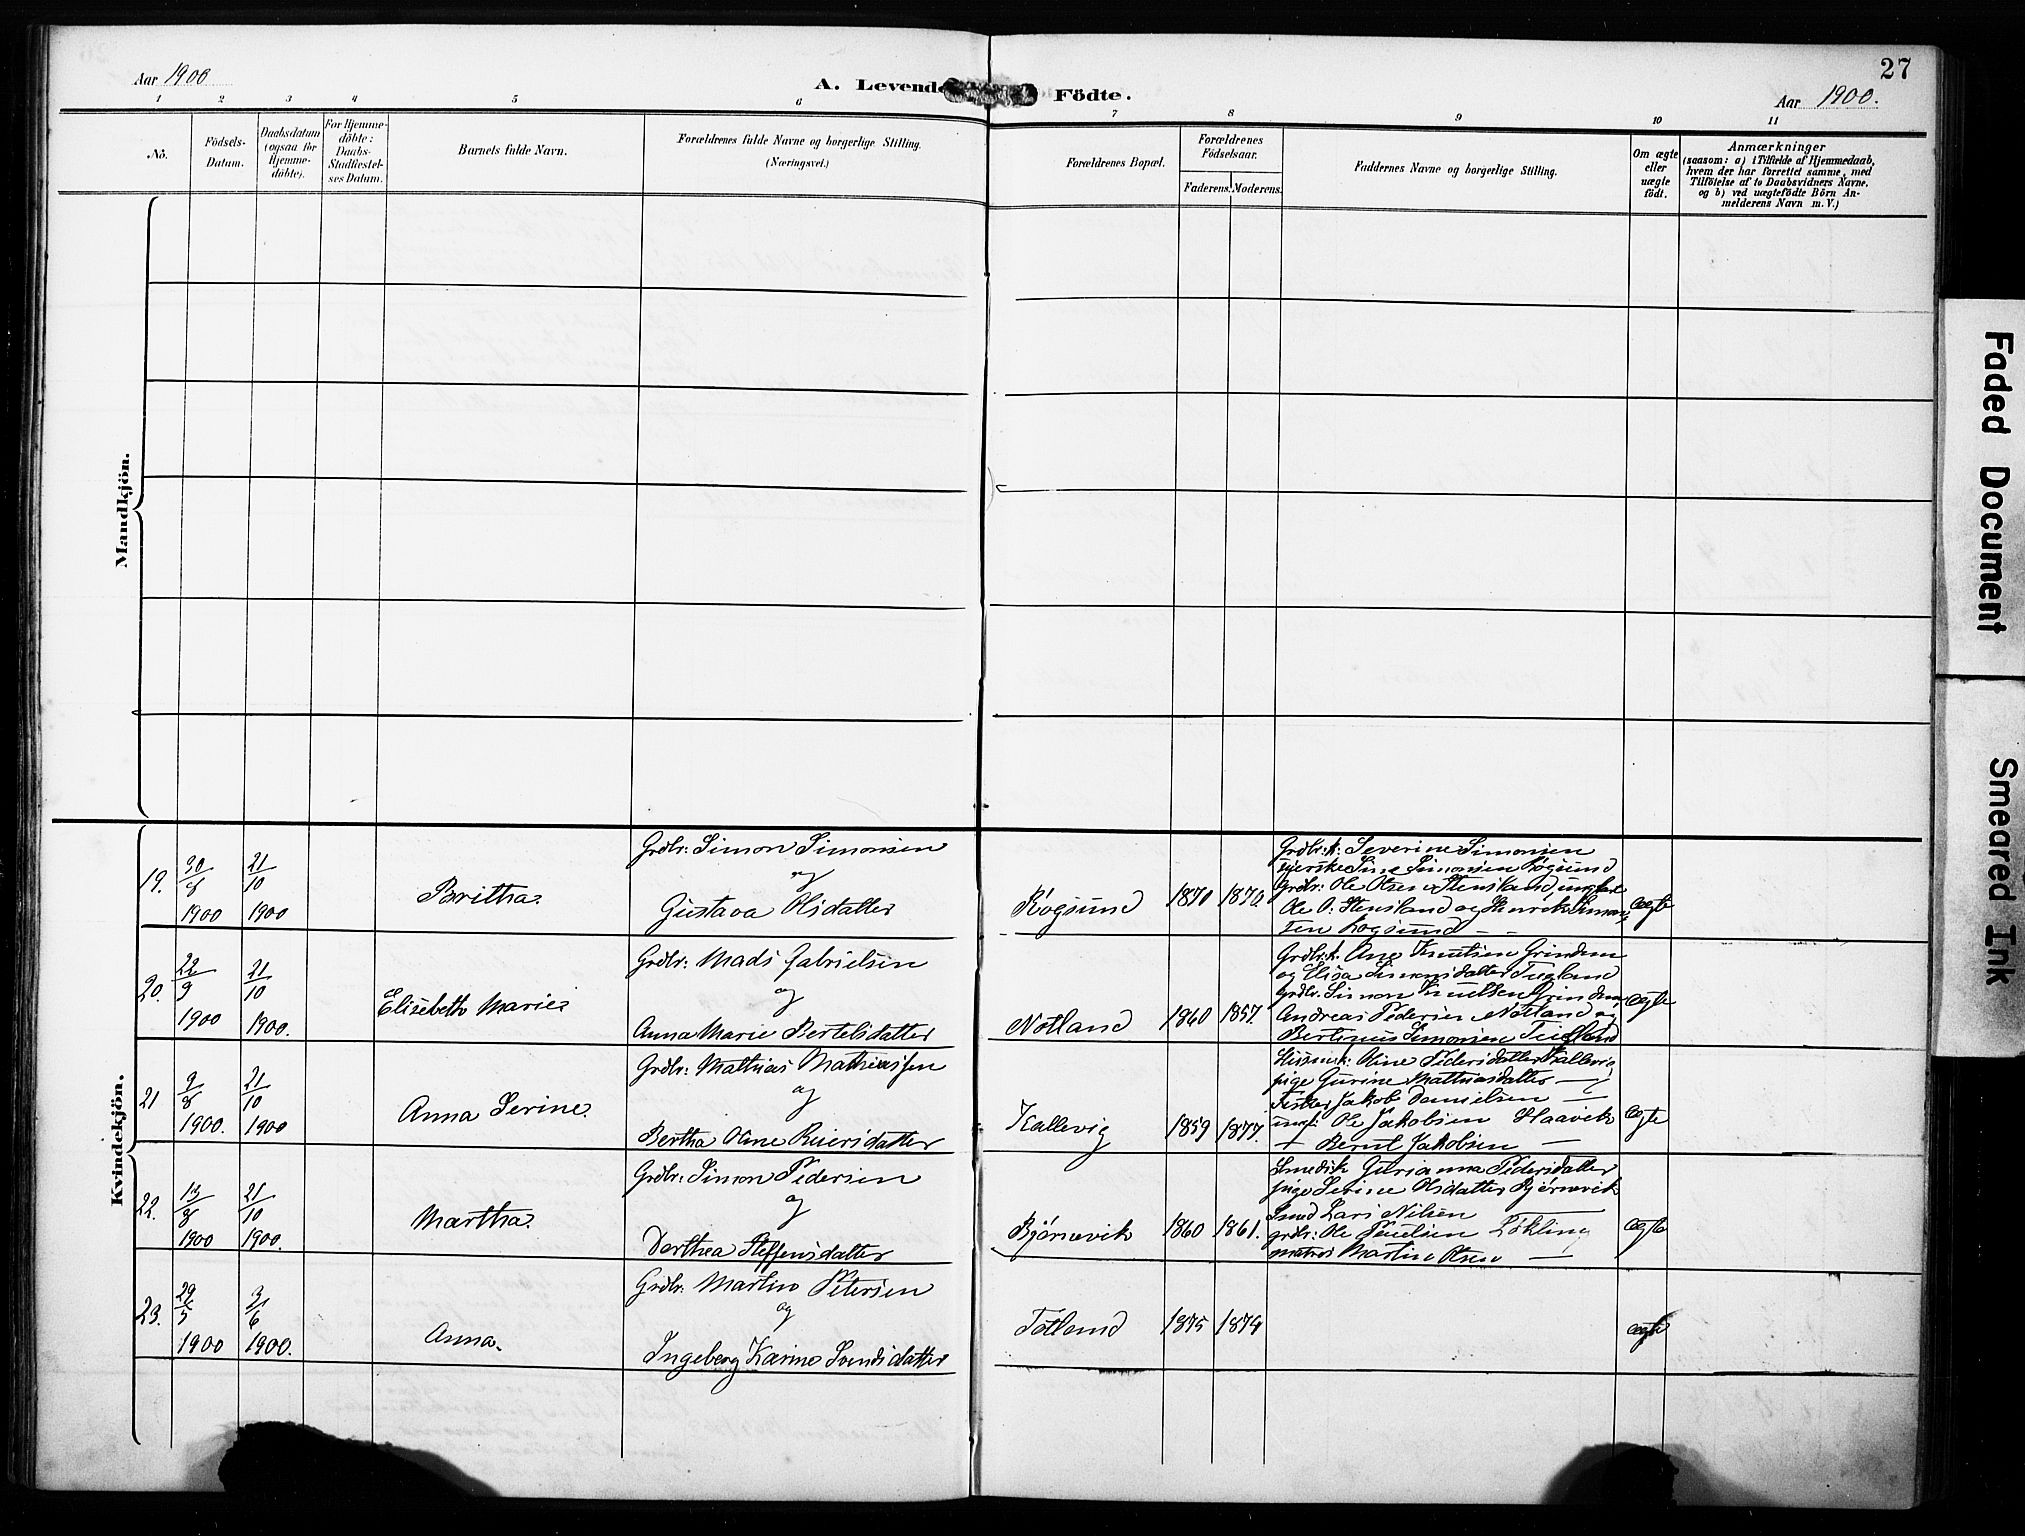 Aar 1900
A. Levende Födte.
27
Aar 1900.
1 2 3 4 5 6 7 8 9 10 11
No.
Födsels-
Datum.
Daabsdatum
(ogsaa för
Hjemme-
döbte).
For Hjemme-
döbte:
Daabs-
Stadfæstel-
ses Datum.
Barnets fulde Navn.
Forældrenes fulde Navne og borgerlige Stilling.
(Næringsvei.)
Forældrenes Bopæl.
Forældrenes
Födselsaar.
Faderens. Moderens.
Faddernes Navne og borgerlige Stilling.
Om ægte
eller
uægte
födt.
Anmærkninger
(saasom: a) i Tilfælde af Hjemmedaab,
hvem der har forrettet samme, med
Tilföielse af to Daabsvidners Navne,
og b) ved uægtefödte Börn An-
melderens Navn m. V.)
Mandkjön.
Kvindekjön.
19.
30/8
1900
21/10
1900
Britha.
Grdbr: Simon Simonsen
og
Gustava Olsdatter
Røgsund
1870 1870.
Grdbr.k: Severine Simonsen
Sine Simonsen Røgsund
Grdbr: Ole Olsen Stensland
Ole O. Stensland og Henrik Simon-
sen Røgsund
ægte
20.
22/9
1900
21/10
1900.
Elisebeth Marie
Grdbr: Mads Gabrielsen
og
Anna Marie Bertelsdatter
Nøtland
1860 1857.
Grdbr.k. Ane Knutsen Grindem
og Elisa Simonsdatter
Grdbr: Simon Knutsen Grindem
Andreas Pedersen Nøtland og
Bertinus Simonsen
ægte
21
9/8
1900.
21/10
1900
Anna Serine
Grdbr: Mathias Mathiassen
og
Bertha Oline Reiersdatter
Kallevig
1859 1877.
Husm.k: Oline Pedersdatter Kallevig
pige Gurine Mathiasdatter —
Fisker Jakob Danielsen —
ungk: Ole Jakobsen Haavik
Bernt Jakobsen —
ægte
22.
13/8
1900
21/10
1900.
Martha.
Grdbr: Simon Pedersen
og
Dorthea Steffensdatter
Bjørnevik
1860 1861.
Smedsk Gurianna Pedersdatter
pige Serine Olsdatter Bjørnevik
Smed Lars Nilsen
grdbr: Ole Poulsen Løkling
matros Martin Olsen —
ægte
23.
29/5
1900
3/6
1900.
Anna.
Grdbr: Martin Petersen
og
Ingeborg Karine Svendsdatter
Totland
1875 1879
ægte
Faded Document
Smeared Ink